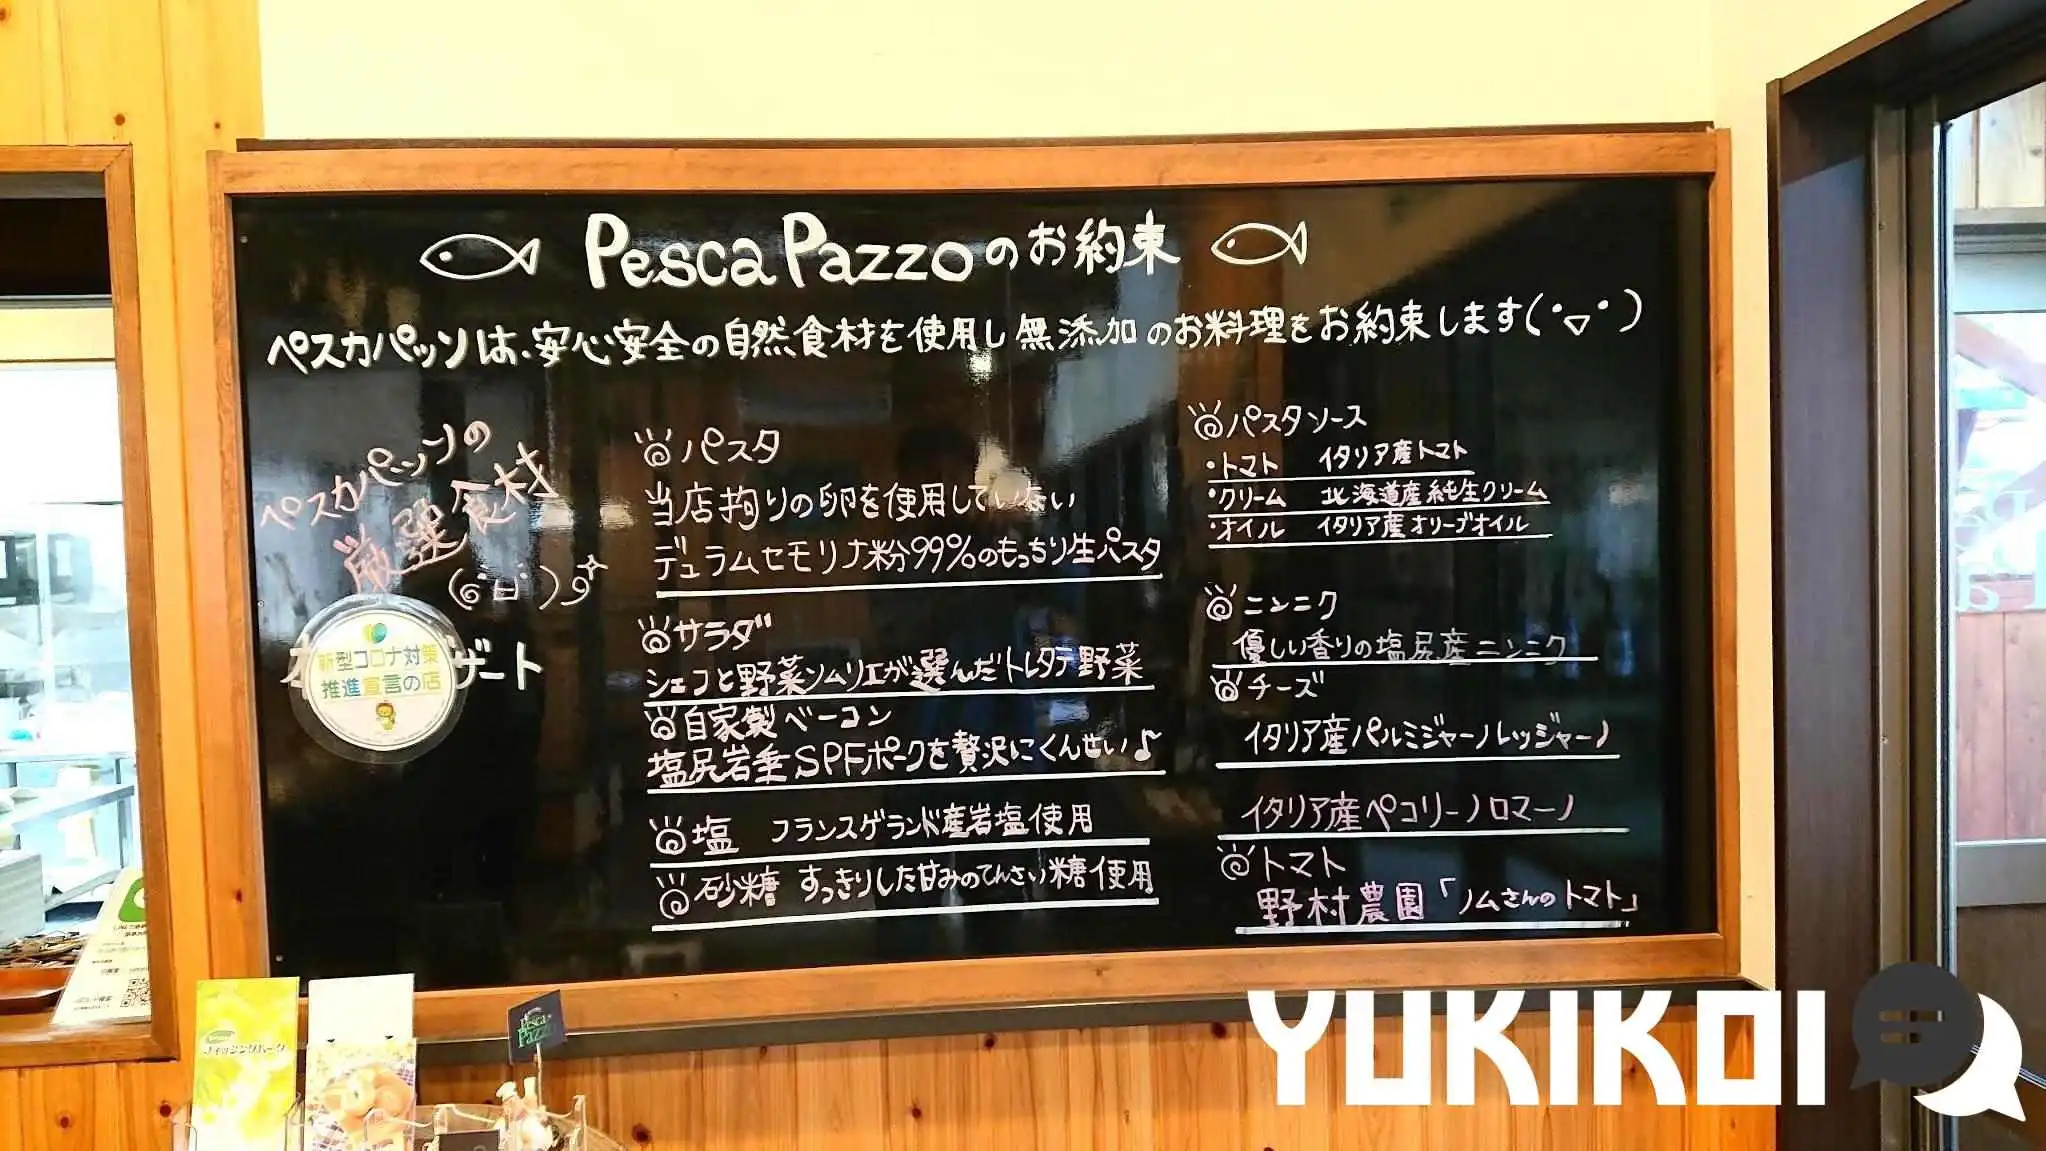 Pesca Pazzoのお約束
ペスカパッソは、安心安全の自然食材を使用し無添加のお料理をお約束します(・▽・)
ペスカパッソの
厳選食材
新型コロナ対策
推進宣言の店
ザート
パスタ
当店拘りの卵を使用していない
デュラムセモリナ粉99%のもっちり生パスタ
サラダ
シェフと野菜ソムリエが選んだトレタテ野菜
自家製ベーコン
塩尻岩垂SPFポークを贅沢にくんせい♪
塩 フランスゲランド産岩塩使用
砂糖 すっきりした甘みのてんさい糖使用
パスタソース
・トマト イタリア産トマト
・クリーム 北海道産純生クリーム
・オイル イタリア産オリーブオイル
ニンニク
優しい香りの塩尻産ニンニク
チーズ
イタリア産パルミジャーノレッジャーノ
イタリア産ペコリーノロマーノ
トマト
野村農園「ノムさんのトマト」
フィッシングパーク
Pesca
Pazzo
YUKIKOI